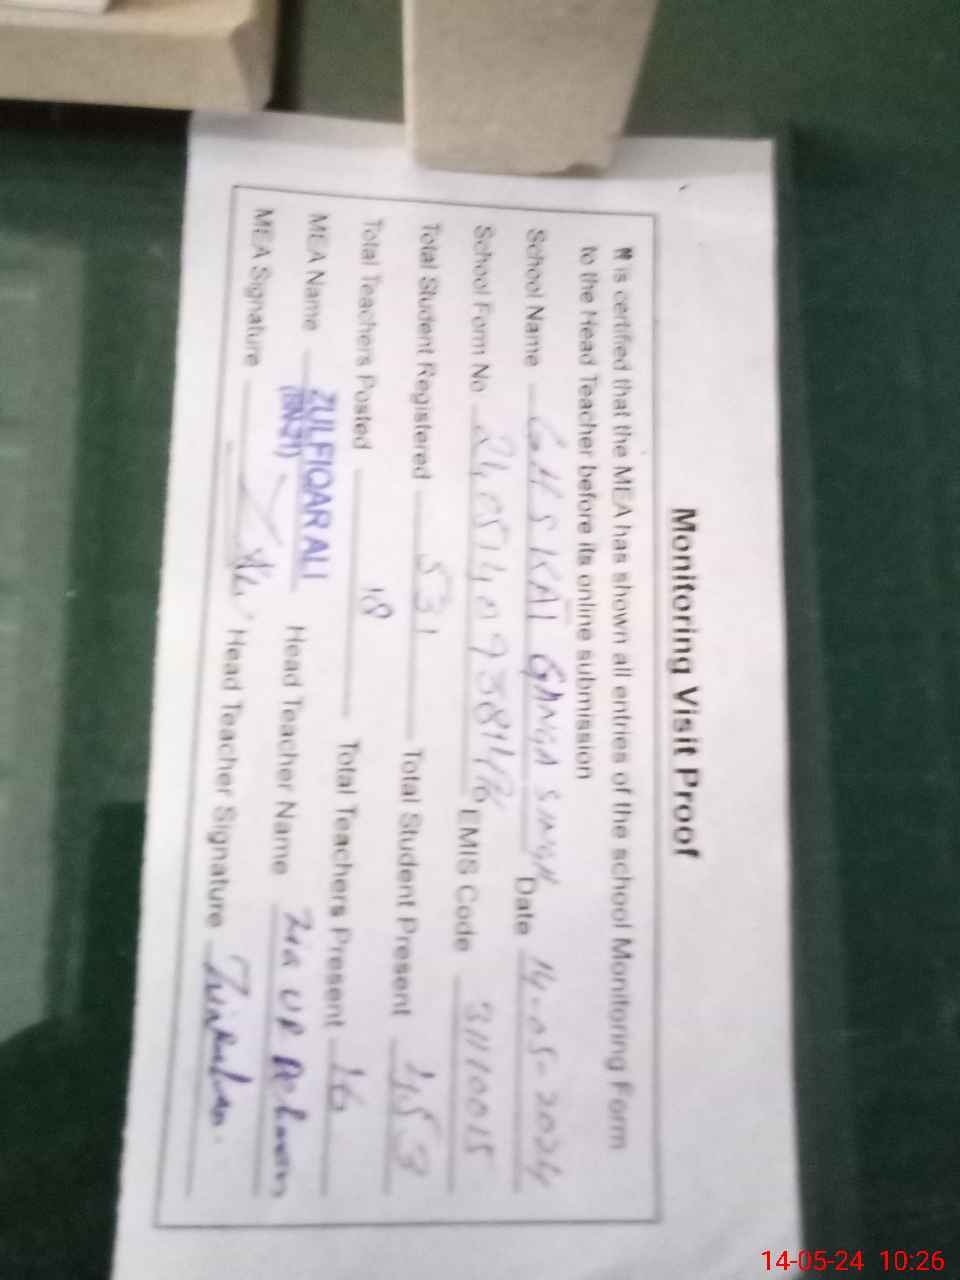 Monitoring Visit Proof
It is certified that the MEA has shown all entries of the school Monitoring Form
to the Head Teacher before its online submission
School Name GHS KAT GANGA SINGH Date 14-05-2024
School Form No EMIS Code 31110015
Total Student Registered 531 Total Student Present 453
Total Teachers Posted 18 Total Teachers Present 16
MEA Name ZULFIQAR ALI Head Teacher Name Zia UR Rehman
(BN-21)
MEA Signature Head Teacher Signature
14-05-24 10:26